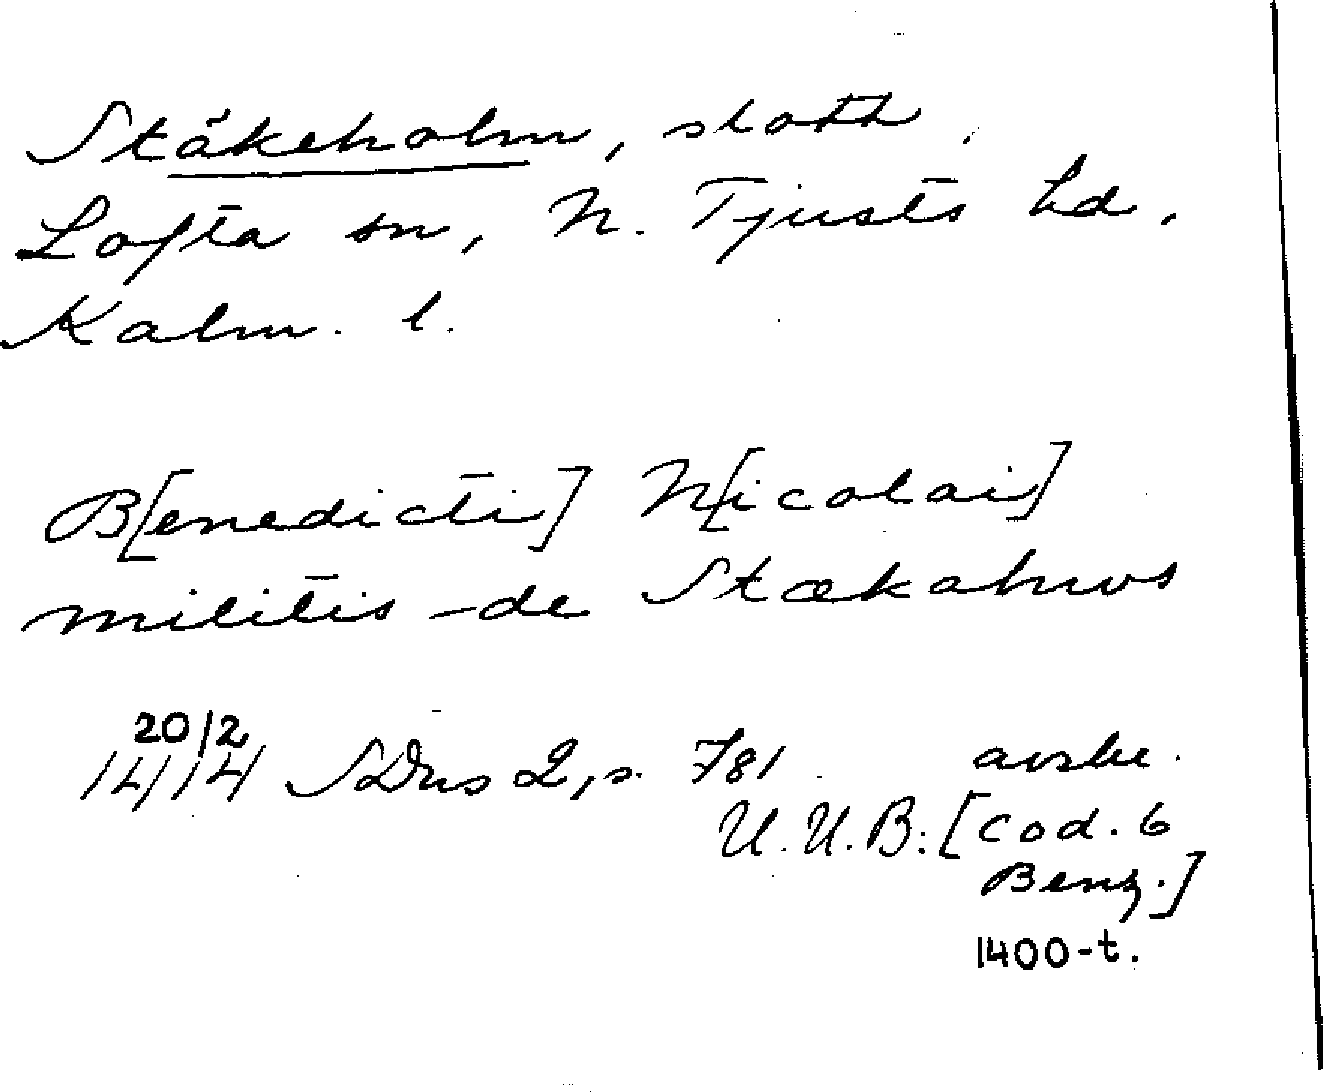 Stäkeholm, slott,
Lofta sn, N. Tjusts hd,
Kalm. l.
B[enedicti] N[icolai]
militis de Stækahws
20/2
1414 SDns 2, s. 781 avskr.
U.U.B: [Cod. 6
Benz.]
1400-t.